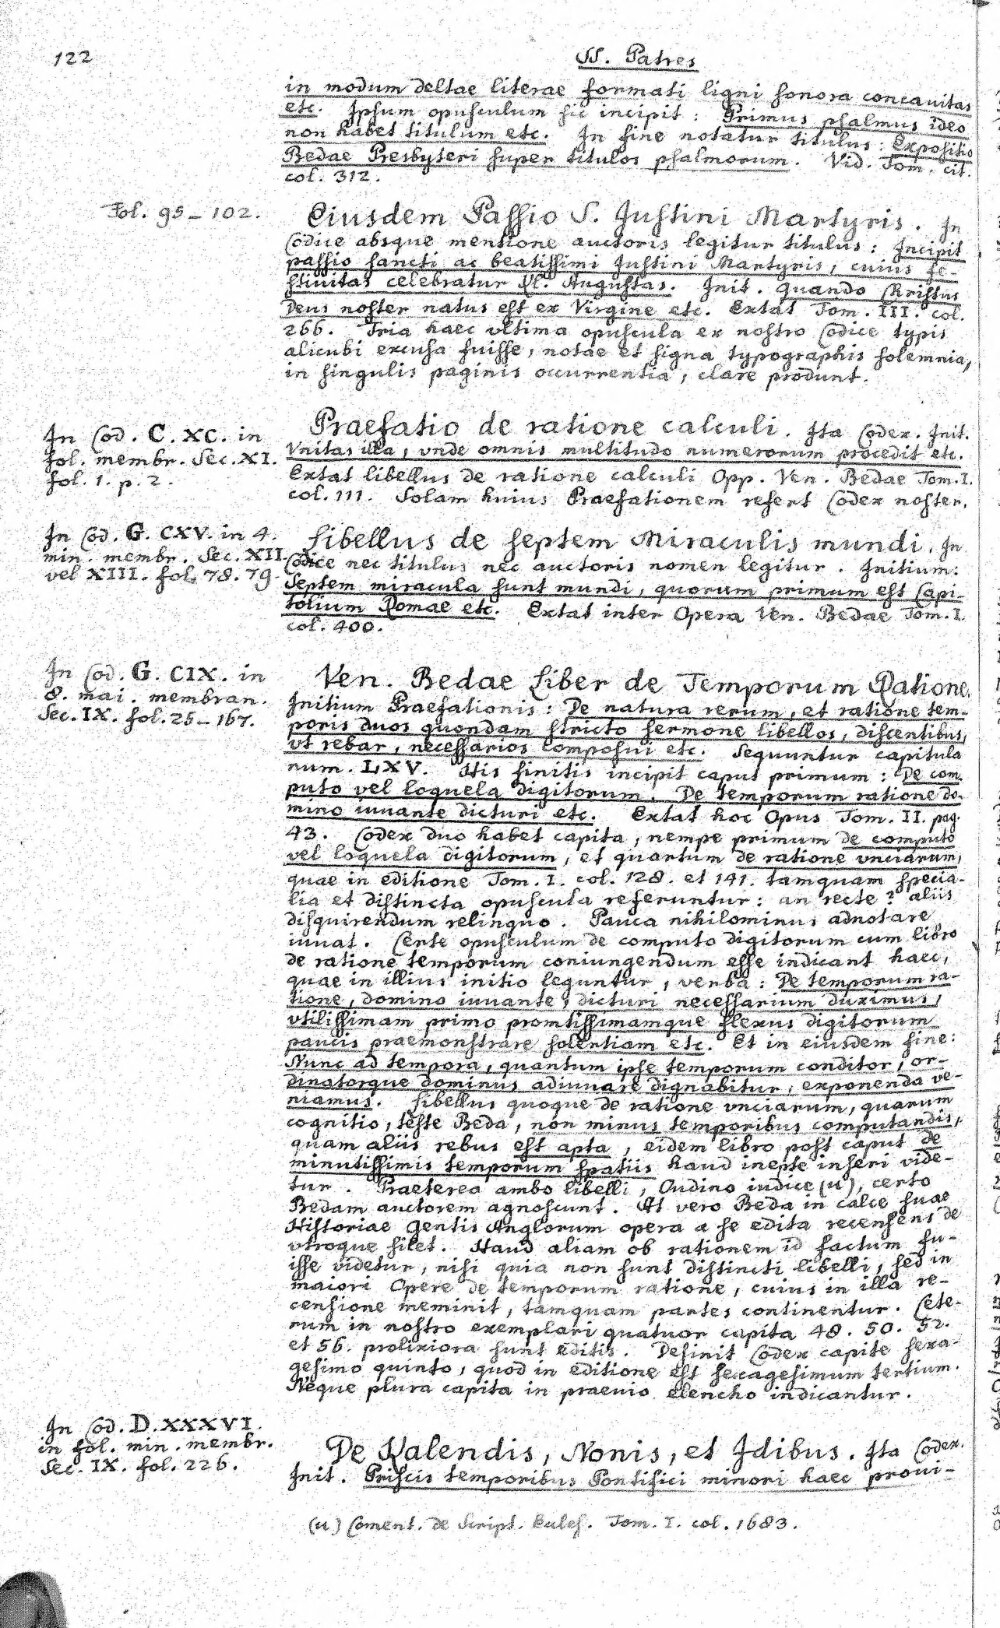 122
SS. Patres
in modum deltae literae formati ligni sonora concauitas
etc. Ipsum opusculum sic incipit: Primus psalmus ideo
non habet titulum etc. In fine notatur titulus: Expositio
Bedae Presbyteri super titulos psalmorum. Vid. Tom. cit.
col. 312.
Fol. 95-102.
Eiusdem Passio S. Iustini Martyris. In
Codice absque mentione auctoris legitur titulus: Incipit
passio sancti ac beatissimi Iustini Martyris, cuius fe-
stiuitas celebratur Kl. Augustas. Init. quando Christus
Deus noster natus est ex Virgine etc. Extat Tom. III. col.
266. Tria haec vltima opuscula ex nostro Codice typis
alicubi excusa fuisse, notae et signa typographis solemnia,
in singulis paginis occurrentia, clare produnt.
In Cod. C. XC. in
fol. membr. Sec. XI.
fol. 1. p. 2.
Praefatio de ratione calculi. Ita Codex. Init.
Vnitas illa, vnde omnis multitudo numerorum procedit etc.
Extat libellus de ratione calculi Opp. Ven. Bedae Tom. I.
col. 111. Solam huius Praefationem refert Codex noster.
In Cod. G. CXV. in 4.
min. membr. Sec. XII.
vel XIII. fol. 78. 79.
Libellus de septem Miraculis mundi. In
Codice nec titulus nec auctoris nomen legitur. Initium:
Septem miracula sunt mundi, quorum primum est Capi-
tolium Romae etc. Extat inter Opera Ven. Bedae Tom. I.
col. 400.
In Cod. G. CIX. in
8. mai. membran.
Sec. IX. fol. 25-167.
Ven. Bedae Liber de Temporum Ratione.
Initium Praefationis: De natura rerum, et ratione tem-
poris duos quondam stricto sermone libellos, discentibus,
vt rebar, necessarios composui etc. Sequuntur capitula
num. LXV. His finitis incipit caput primum: De com-
puto vel loquela digitorum. De temporum ratione do-
mino iuuante dicturi etc. Extat hoc Opus Tom. II. pag.
43. Codex duo habet capita, nempe primum de computo
vel loquela digitorum, et quartum de ratione vnciarum,
quae in editione Tom. I. col. 128. et 141. tamquam specia-
lia et distincta opuscula referuntur: an recte? aliis
disquirendum relinquo. Pauca nihilominus adnotare
iuuat. Certe opusculum de computo digitorum cum libro
de ratione temporum coniungendum esse indicant haec,
quae in illius initio leguntur, verba: De temporum ra-
tione, domino iuuante, dicturi necessarium duximus,
vtilissimam primo promtissimamque flexus digitorum
paucis praemonstrare solentiam etc. Et in eiusdem fine:
Nunc ad tempora, quantum ipse temporum conditor, or-
dinatorque dominus adiuuare dignabitur, exponenda ve-
niamus. Libellus quoque de ratione vnciarum, quarum
cognitio, teste Beda, non minus temporibus computandis,
quam aliis rebus est apta, eidem libro post caput de
minutissimis temporum spatiis haud inepte inseri vide-
tur. Praeterea ambo libelli, Oudino iudice (u), certo
Bedam auctorem agnoscunt. At vero Beda in calce suae
Historiae gentis Anglorum opera a se edita recensens de
vtroque silet. Haud aliam ob rationem id factum fu-
isse videtur, nisi quia non sunt distincti libelli, sed in
maiori Opere de temporum ratione, cuius in illa re-
censione meminit, tamquam partes continentur. Cete-
rum in nostro exemplari quatuor capita 48. 50. 52.
et 56. prolixiora sunt Editis. Definit Codex capite sexa-
gesimo quinto, quod in editione est sexagesimum tertium.
Neque plura capita in praeuio elencho indicantur.
In Cod. D. XXXVI.
in fol. min. membr.
Sec. IX. fol. 226.
De Kalendis, Nonis, et Idibus. Ita Codex.
Init. Priscis temporibus Pontifici minori haec proui-
(u) Coment. de Script. Eccles. Tom. I. col. 1683.